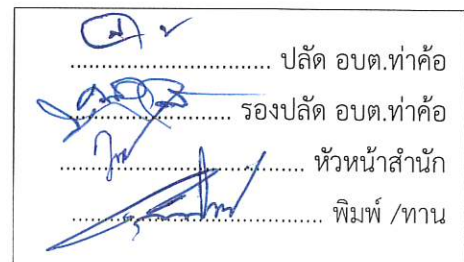 ........................... ปลัด อบต.ท่าค้อ
........................... รองปลัด อบต.ท่าค้อ
........................... หัวหน้าสำนัก
........................... พิมพ์ /ทาน